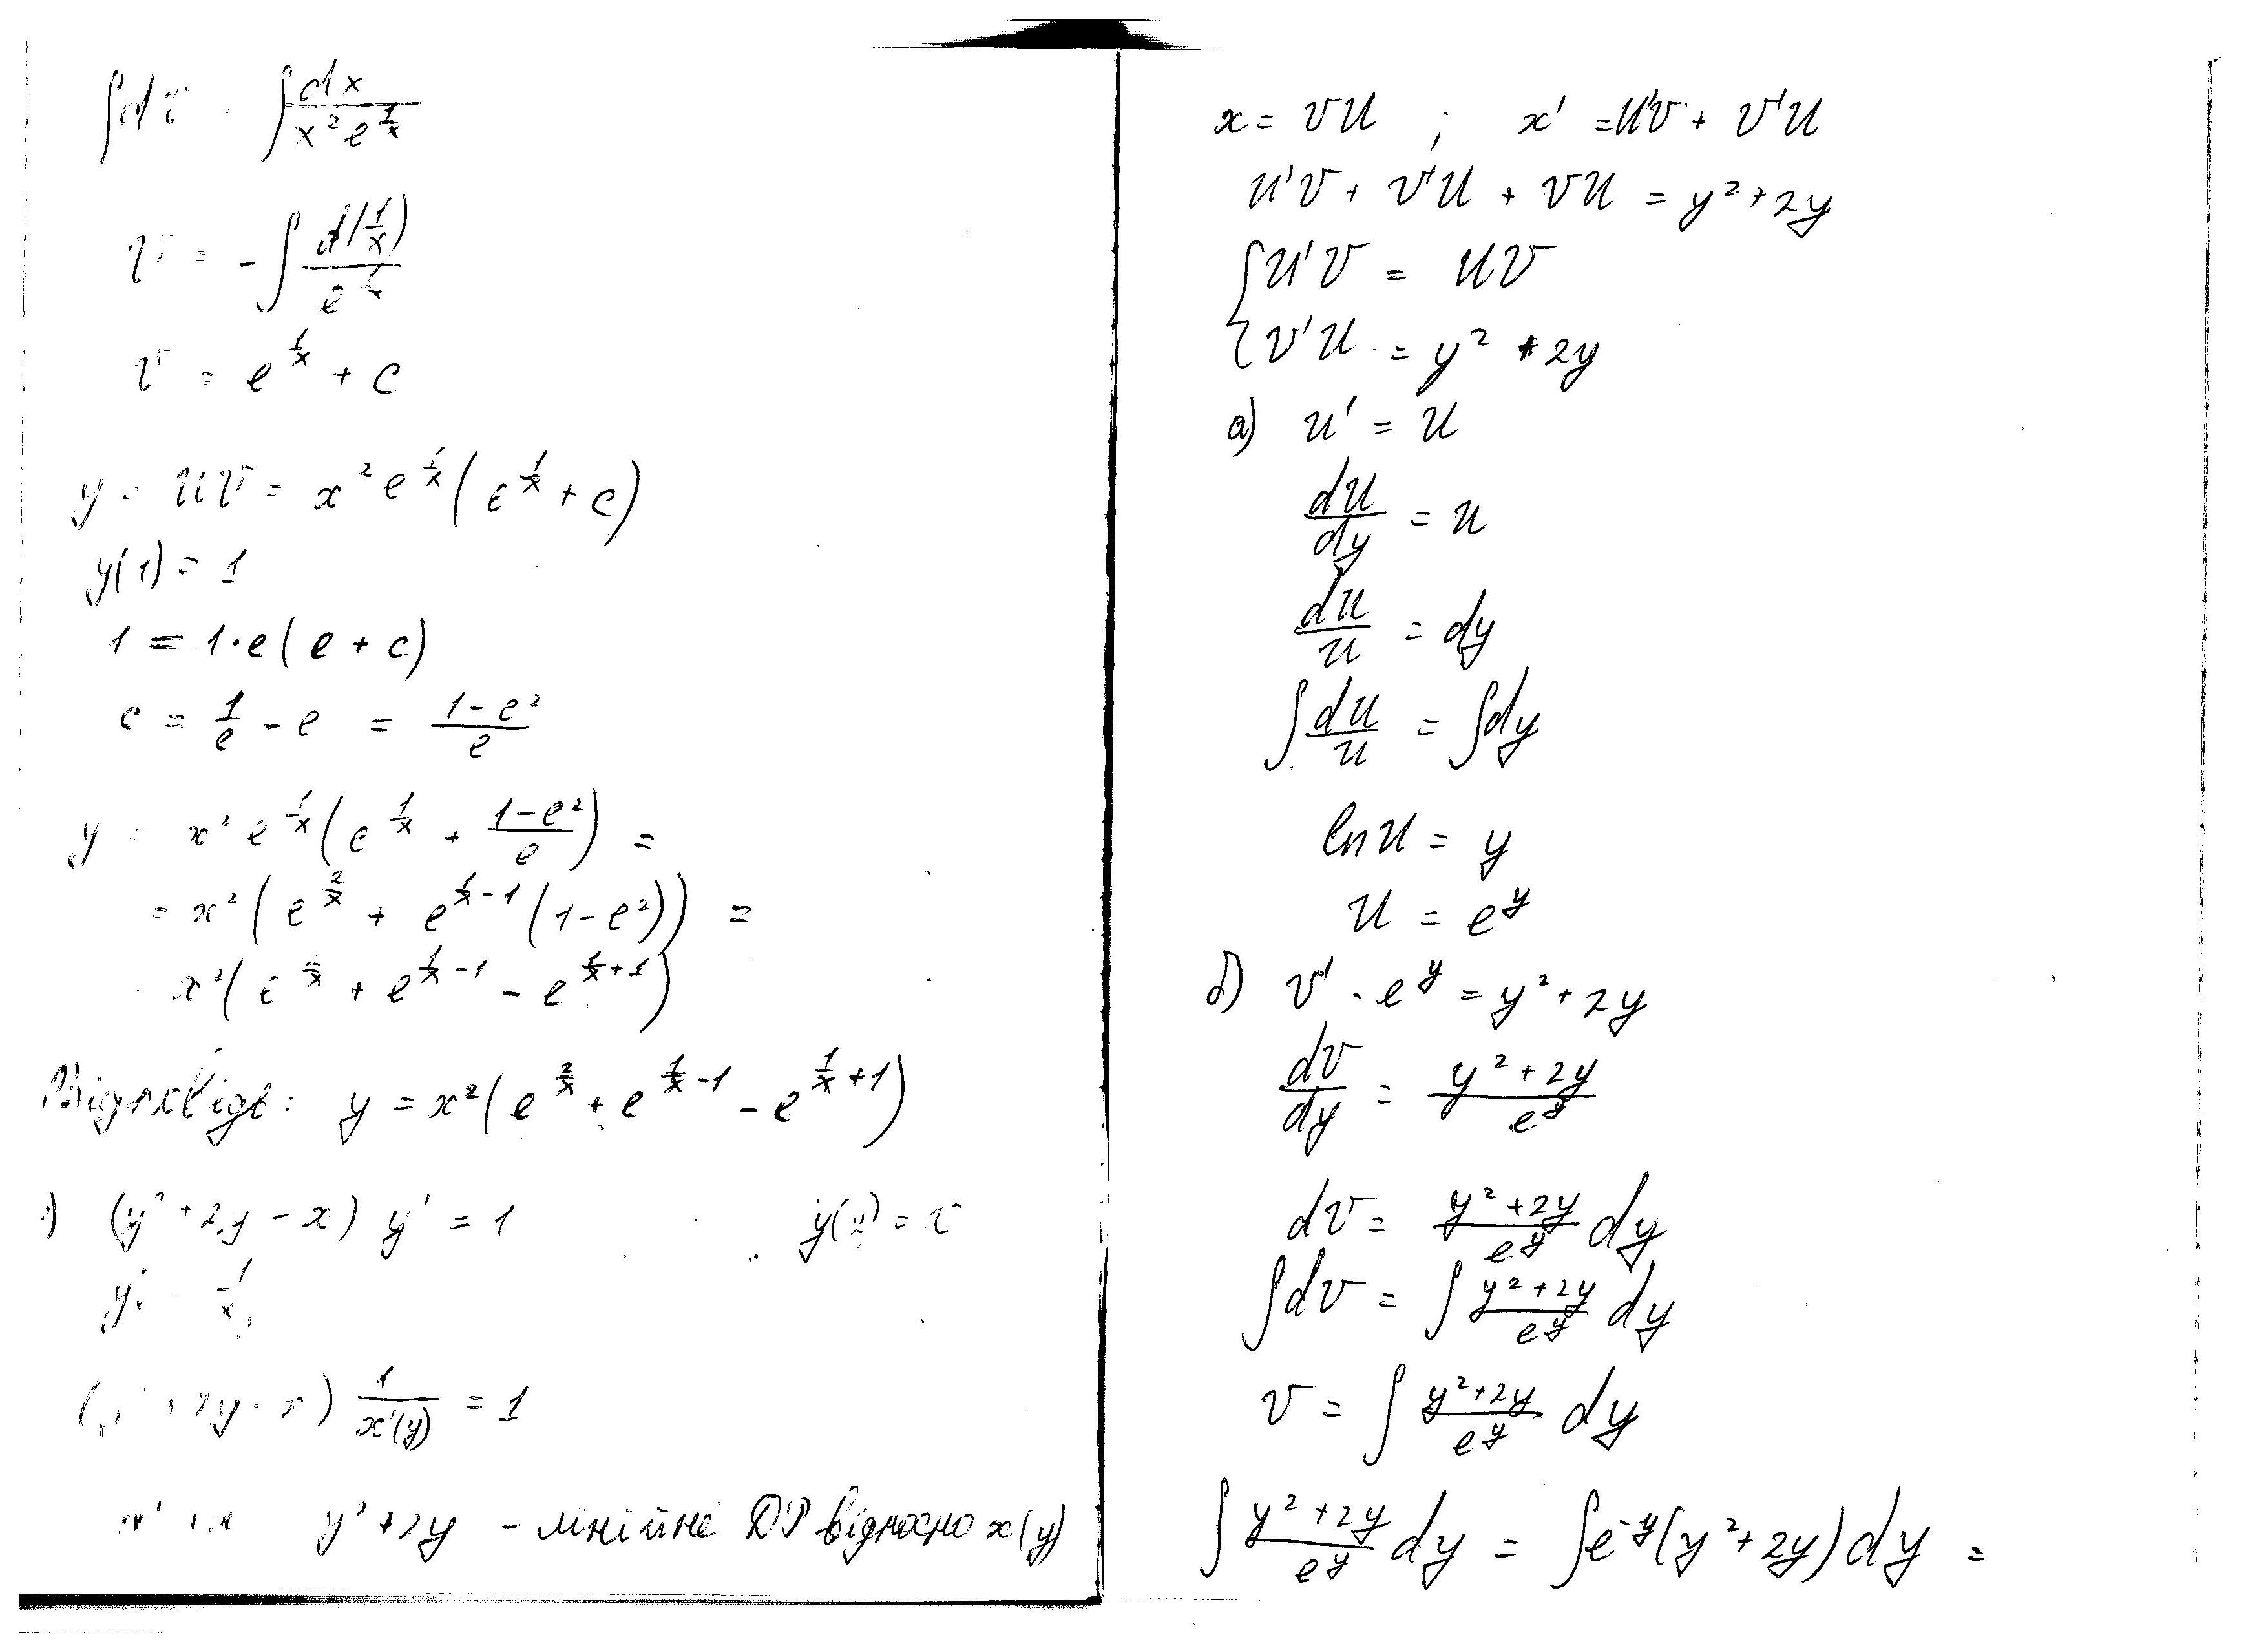 ∫dv = ∫ dx / (x² e^(1/x))
v = -∫ d(1/x) / e^(1/x)
v = e^(1/x) + c
y = uv = x² e^(1/x) (e^(1/x) + c)
y(1) = 1
1 = 1·e(e + c)
c = 1/e - e = (1-e²)/e
y = x² e^(1/x) (e^(1/x) + (1-e²)/e) =
= x² (e^(2/x) + e^(1/x-1) (1-e²)) =
= x² (e^(2/x) + e^(1/x-1) - e^(1/x+1))
Відповідь: y = x² (e^(2/x) + e^(1/x-1) - e^(1/x+1))
(y² + 2y - x) y' = 1
(y² + 2y - x) 1/x'(y) = 1
x' + x = y² + 2y - лінійне ДР відносно x(y)
x = vu ; x' = u'v + v'u
u'v + v'u + vu = y² + 2y
{ u'v = uv
{ v'u = y² + 2y
а) u' = u
du/dy = u
du/u = dy
∫ du/u = ∫dy
ln u = y
u = e^y
б) v' · e^y = y² + 2y
dv/dy = (y² + 2y)/e^y
dv = (y² + 2y)/e^y dy
∫dv = ∫ (y² + 2y)/e^y dy
v = ∫ (y² + 2y)/e^y dy
∫ (y² + 2y)/e^y dy = ∫e^(-y) (y² + 2y) dy =